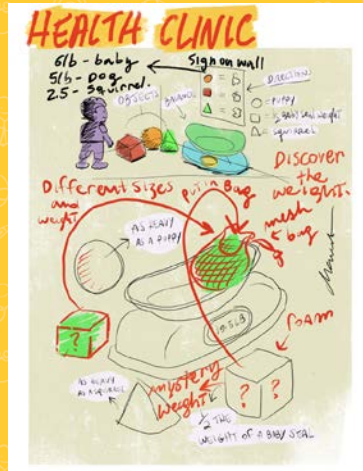 HEALTH CLINIC
6lb - baby
5lb - Dog
2.5 - Squirrel.
Sign on wall
DIRECTIONS
OBJECTS
BALANCE
= PUPPY
= SQUIRREL
Discover
the
weight.
Different sizes
and
weight
PUT IN Bag
mesh
bag
AS HEAVY
AS A PUPPY
foam
?
?
AS HEAVY
AS A SQUIRREL
mystery
weight
?
?
1/2 THE
WEIGHT OF A BABY SEAL